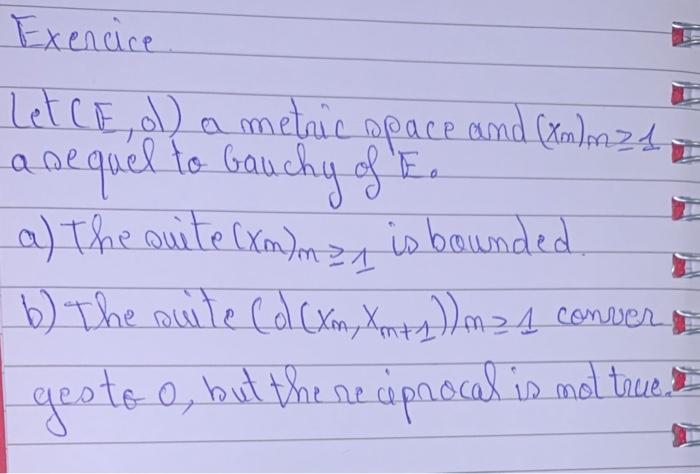 Exercice.
Let (E, d) a metric space and (xn)n≥1
a sequel to Cauchy of E.
a) The suite (xn)n≥1 is bounded.
b) The suite (d(xn, xn+1))n≥1 conver
ges to 0, but the reciprocal is not true.